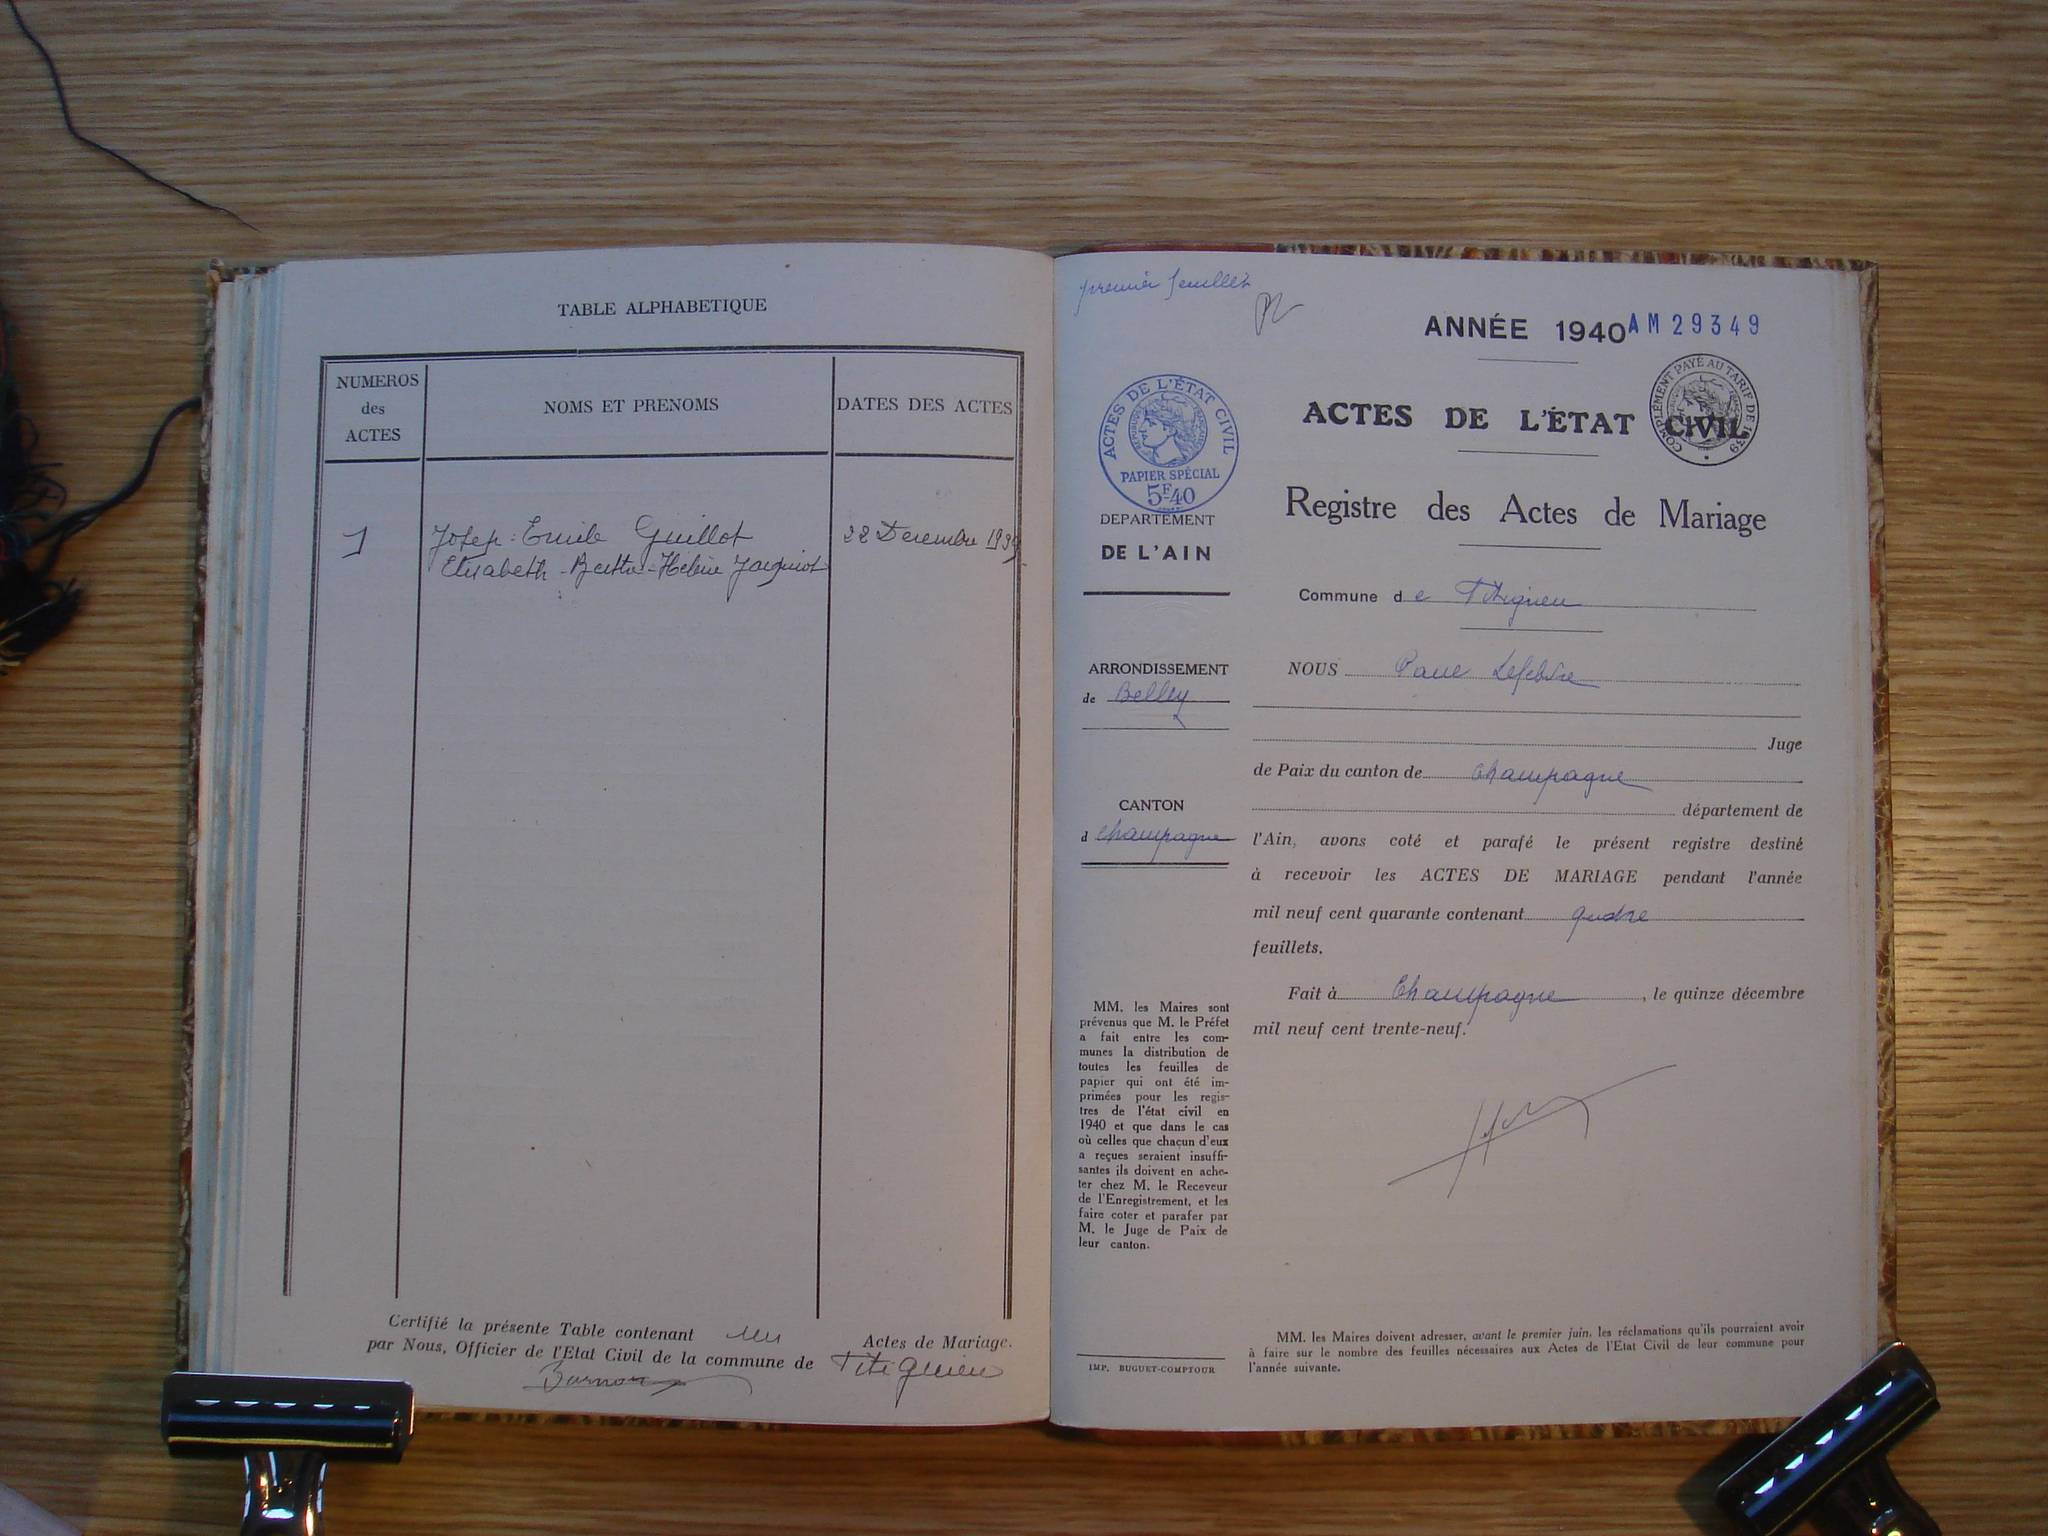 TABLE ALPHABETIQUE
NUMEROS
des
ACTES
NOMS ET PRENOMS
DATES DES ACTES
1
Josep - Emile Guillot
22 Decembre 1939
Elisabeth - Berthe - Hélène
Certifié la présente Table contenant un Actes de Mariage.
par Nous, Officier de l'Etat Civil de la commune de Titignieu
premier feuillet
ANNÉE 1940
AM 29349
ACTES DE L'ÉTAT CIVIL
RÉPUBLIQUE FRANÇAISE
PAPIER SPÉCIAL
5F40
COMPLÉMENT PAYÉ AU TARIF DE 1939
ACTES DE L'ÉTAT CIVIL
Registre des Actes de Mariage
DEPARTEMENT
DE L'AIN
Commune de
ARRONDISSEMENT
de Belley
NOUS Paul Lefebvre
Juge
de Paix du canton de Champagne
département de
CANTON
d Champagne
l'Ain, avons coté et parafé le présent registre destiné
à recevoir les ACTES DE MARIAGE pendant l'année
mil neuf cent quarante contenant quatre
feuillets.
Fait à Champagne, le quinze décembre
mil neuf cent trente-neuf.
MM. les Maires sont
prévenus que M. le Préfet
a fait entre les com-
munes la distribution de
toutes les feuilles de
papier qui ont été im-
primées pour les regis-
tres de l'état civil en
1940 et que dans le cas
où celles que chacun d'eux
a reçues seraient insuffi-
santes ils doivent en ache-
ter chez M. le Receveur
de l'Enregistrement, et les
faire coter et parafer par
M. le Juge de Paix de
leur canton.
IMP. BUGUET-COMPTOUR
MM. les Maires doivent adresser, avant le premier juin, les réclamations qu'ils pourraient avoir
à faire sur le nombre des feuilles nécessaires aux Actes de l'Etat Civil de leur commune pour
l'année suivante.